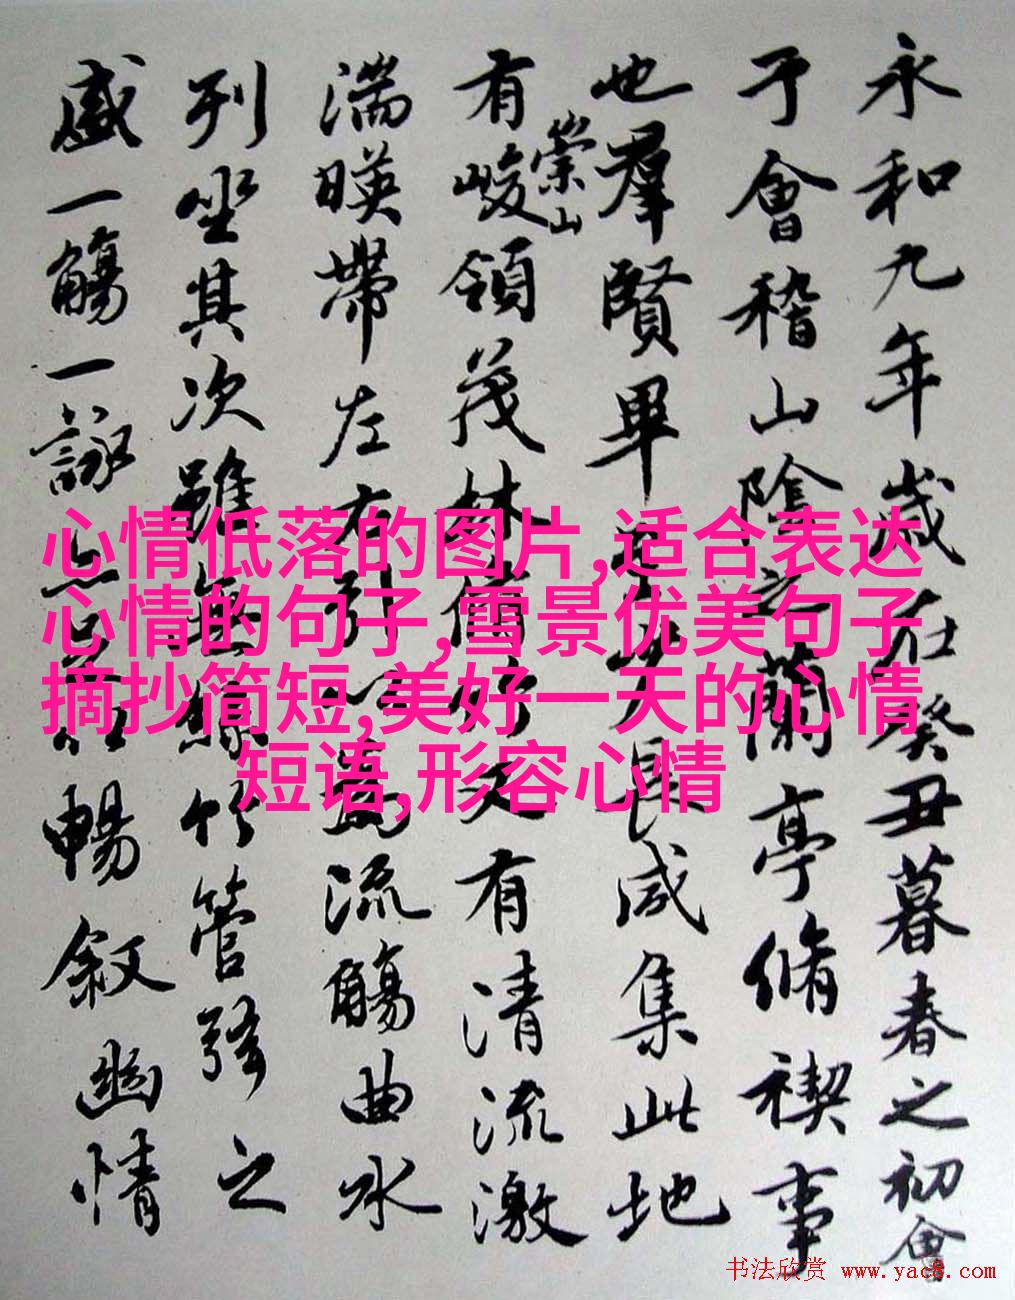 永和九年歲在癸丑暮春之初會
于會稽山陰之蘭亭脩禊事
也羣賢畢至少長咸集此地
有崇山峻領茂林脩竹又有清流激
湍暎帶左右引以為流觴曲水
列坐其次雖無絲竹管弦之
盛一觴一詠亦足以暢敘幽情
心情低落的图片,适合表达
心情的句子,雪景优美句子
摘抄简短,美好一天的心情
短语,形容心情
书法欣赏 www.yac8.com